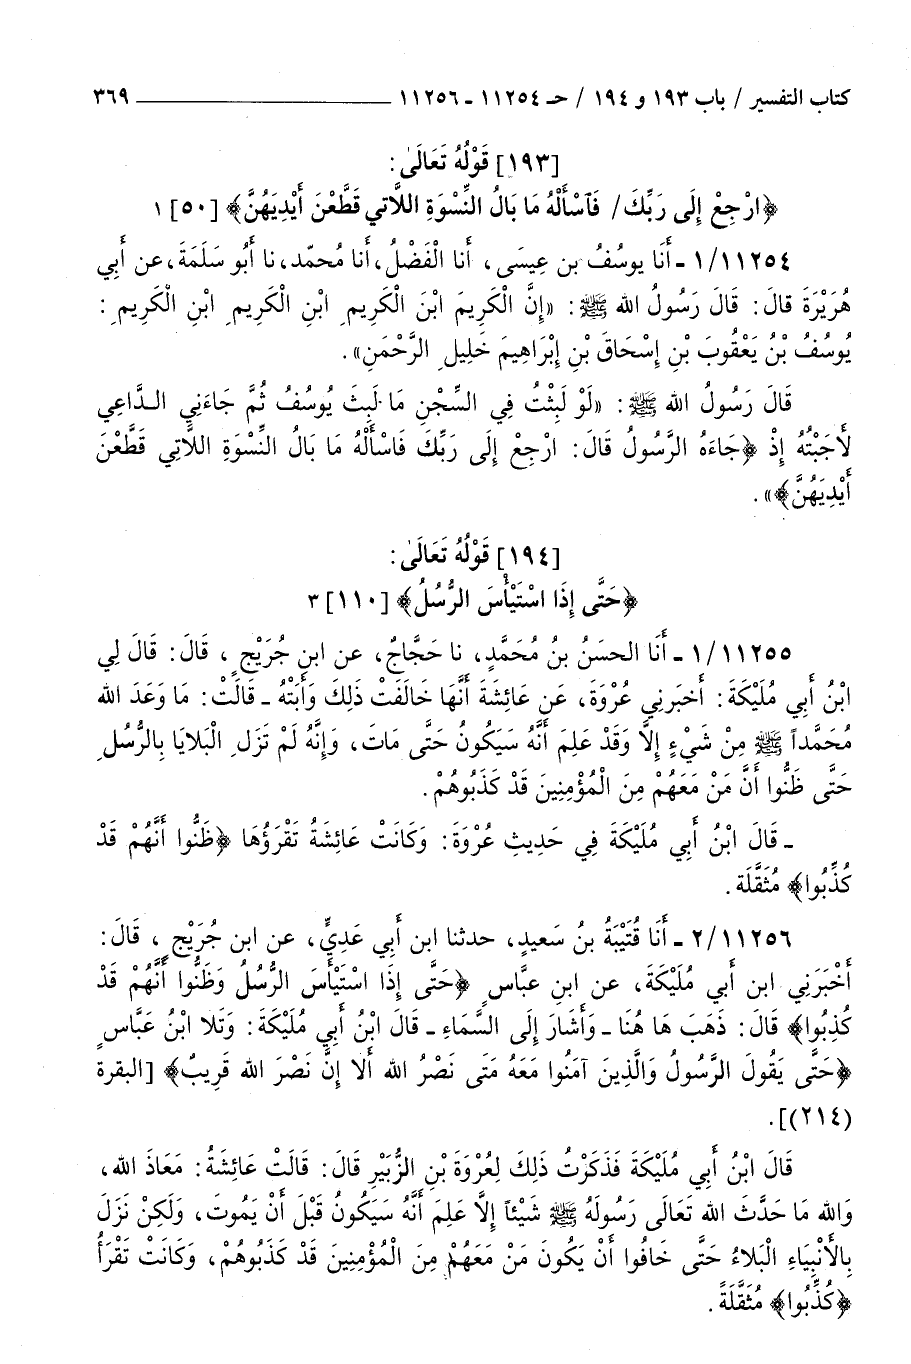 كتاب التفسير / باب ١٩٣ و ١٩٤ / حـ ١١٢٥٤ - ١١٢٥٦ ٣٦٩
[١٩٣] قَوْلُهُ تَعَالَىٰ:
﴿ارْجِعْ إِلَى رَبِّكَ/ فَآسْأَلْهُ مَا بَالُ النِّسْوَةِ اللَّاتِي قَطَّعْنَ أَيْدِيَهُنَّ﴾ [٥٠] ١
١/١١٢٥٤ - أَنَا يوسُفُ بن عِيسَى، أَنا الْفَضْلُ، أَنا مُحمّد، نا أَبُو سَلَمَةَ، عن أَبِي
هُرَيْرَةَ قالَ: قَالَ رَسُولُ الله ﷺ: «إِنَّ الْكَرِيمَ ابْنَ الْكَرِيمِ ابْنِ الْكَرِيمِ ابْنِ الْكَرِيمِ:
يُوسُفُ بْنُ يَعْقُوبَ بْنِ إِسْحَاقَ بْنِ إِبْرَاهِيمَ خَلِيلِ الرَّحْمَنِ».
قَالَ رَسُولُ الله ﷺ: «لَوْ لَبِثْتُ فِي السِّجْنِ مَا لَبِثَ يُوسُفُ ثُمَّ جَاءَنِي الدَّاعِي
لأَجَبْتُهُ إِذْ ﴿جَاءَهُ الرَّسُولُ قَالَ: ارْجِعْ إِلَى رَبِّكَ فَاسْأَلْهُ مَا بَالُ النِّسْوَةِ اللَّاتِي قَطَّعْنَ
أَيْدِيَهُنَّ﴾».
[١٩٤] قَوْلُهُ تَعَالَىٰ:
﴿حَتَّى إِذَا اسْتَيْأَسَ الرُّسُلُ﴾ [١١٠] ٣
١/١١٢٥٥ - أَنَا الحَسَنُ بنُ مُحَمَّدٍ، نا حَجَّاجٌ، عن ابنِ جُرَيْجٍ، قَالَ: قَالَ لِي
ابْنُ أَبِي مُلَيْكَةَ: أَخبَرنِي عُرْوَةَ، عَن عَائِشَةَ أَنَّهَا خَالَفَتْ ذَلِكَ وَأَبَتْهُ - قَالَتْ: مَا وَعَدَ الله
مُحَمَّداً ﷺ مِنْ شَيْءٍ إِلَّا وَقَدْ عَلِمَ أَنَّهُ سَيَكُونُ حَتَّى مَاتَ، وَإِنَّهُ لَمْ تَزَلِ الْبَلايَا بِالرُّسُلِ
حَتَّى ظَنُّوا أَنَّ مَنْ مَعَهُمْ مِنَ الْمُؤْمِنِينَ قَدْ كَذَبُوهُمْ.
- قَالَ ابْنُ أَبِي مُلَيْكَةَ فِي حَدِيثِ عُرْوَةَ: وَكَانَتْ عَائِشَةُ تَقْرَؤُهَا ﴿ظَنُّوا أَنَّهُمْ قَدْ
كُذِّبُوا﴾ مُثَقَّلَة.
٢/١١٢٥٦ - أَنَا قُتَيْبَةُ بنُ سَعيدٍ، حدثنا ابن أَبِي عَدِيٍّ، عن ابن جُرَيْجٍ، قَالَ:
أَخْبَرَنِي ابن أَبي مُلَيْكَةَ، عن ابنِ عبَّاسٍ ﴿حَتَّى إِذَا اسْتَيْأَسَ الرُّسُلُ وَظَنُّوا أَنَّهُمْ قَدْ
كُذِبُوا﴾ قَالَ: ذَهَبَ هَا هُنَا - وَأَشَارَ إِلَى السَّمَاءِ - قَالَ ابْنُ أَبِي مُلَيْكَةَ: وَتَلا ابْنُ عَبَّاسٍ
﴿حَتَّى يَقُولَ الرَّسُولُ وَالَّذِينَ آمَنُوا مَعَهُ مَتَى نَصْرُ الله أَلا إِنَّ نَصْرَ الله قَرِيبٌ﴾ [البقرة
(٢١٤)].
قَالَ ابْنُ أَبِي مُلَيْكَةَ فَذَكَرْتُ ذَلِكَ لِعُرْوَةَ بْنِ الزُّبَيْرِ قَالَ: قَالَتْ عَائِشَةُ: مَعَاذَ الله،
وَالله مَا حَدَّثَ الله تَعَالَى رَسُولَهُ ﷺ شَيْئاً إِلَّا عَلِمَ أَنَّهُ سَيَكُونُ قَبْلَ أَنْ يَمُوتَ، وَلَكِنْ نَزَلَ
بِالأَنْبِيَاءِ الْبَلاءُ حَتَّى خَافُوا أَنْ يَكُونَ مَنْ مَعَهُمْ مِنَ الْمُؤْمِنِينَ قَدْ كَذَبُوهُمْ، وَكَانَتْ تَقْرَأُ
﴿كُذِّبُوا﴾ مُثَقَّلَةً.